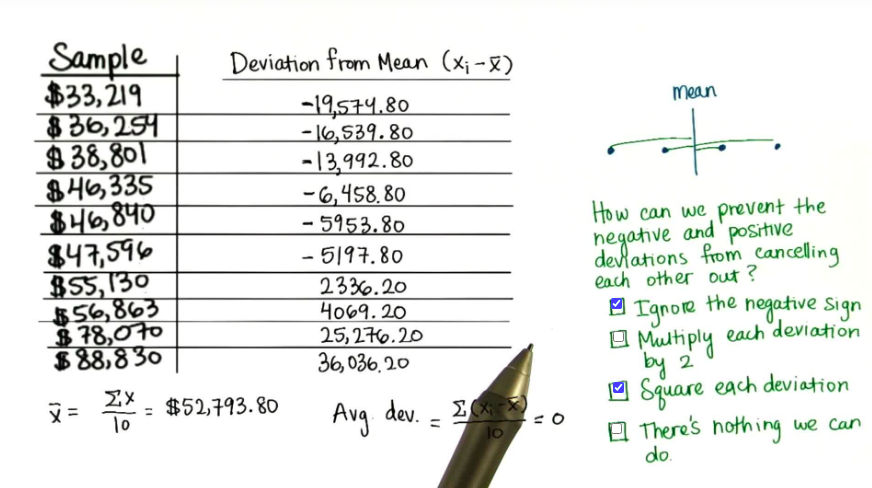 Sample
Deviation from Mean (xᵢ - x̄)
$33,219
-19,574.80
$36,254
-16,539.80
$38,801
-13,992.80
$46,335
-6,458.80
$46,840
-5953.80
$47,596
-5197.80
$55,130
2336.20
$56,863
4069.20
$78,070
25,276.20
$88,830
36,036.20
x̄ = Σx/10 = $52,793.80
Avg. dev. = Σ(xᵢ - x̄)/10 = 0
mean
How can we prevent the
negative and positive
deviations from cancelling
each other out?
Ignore the negative sign
Multiply each deviation
by 2
Square each deviation
There's nothing we can
do.